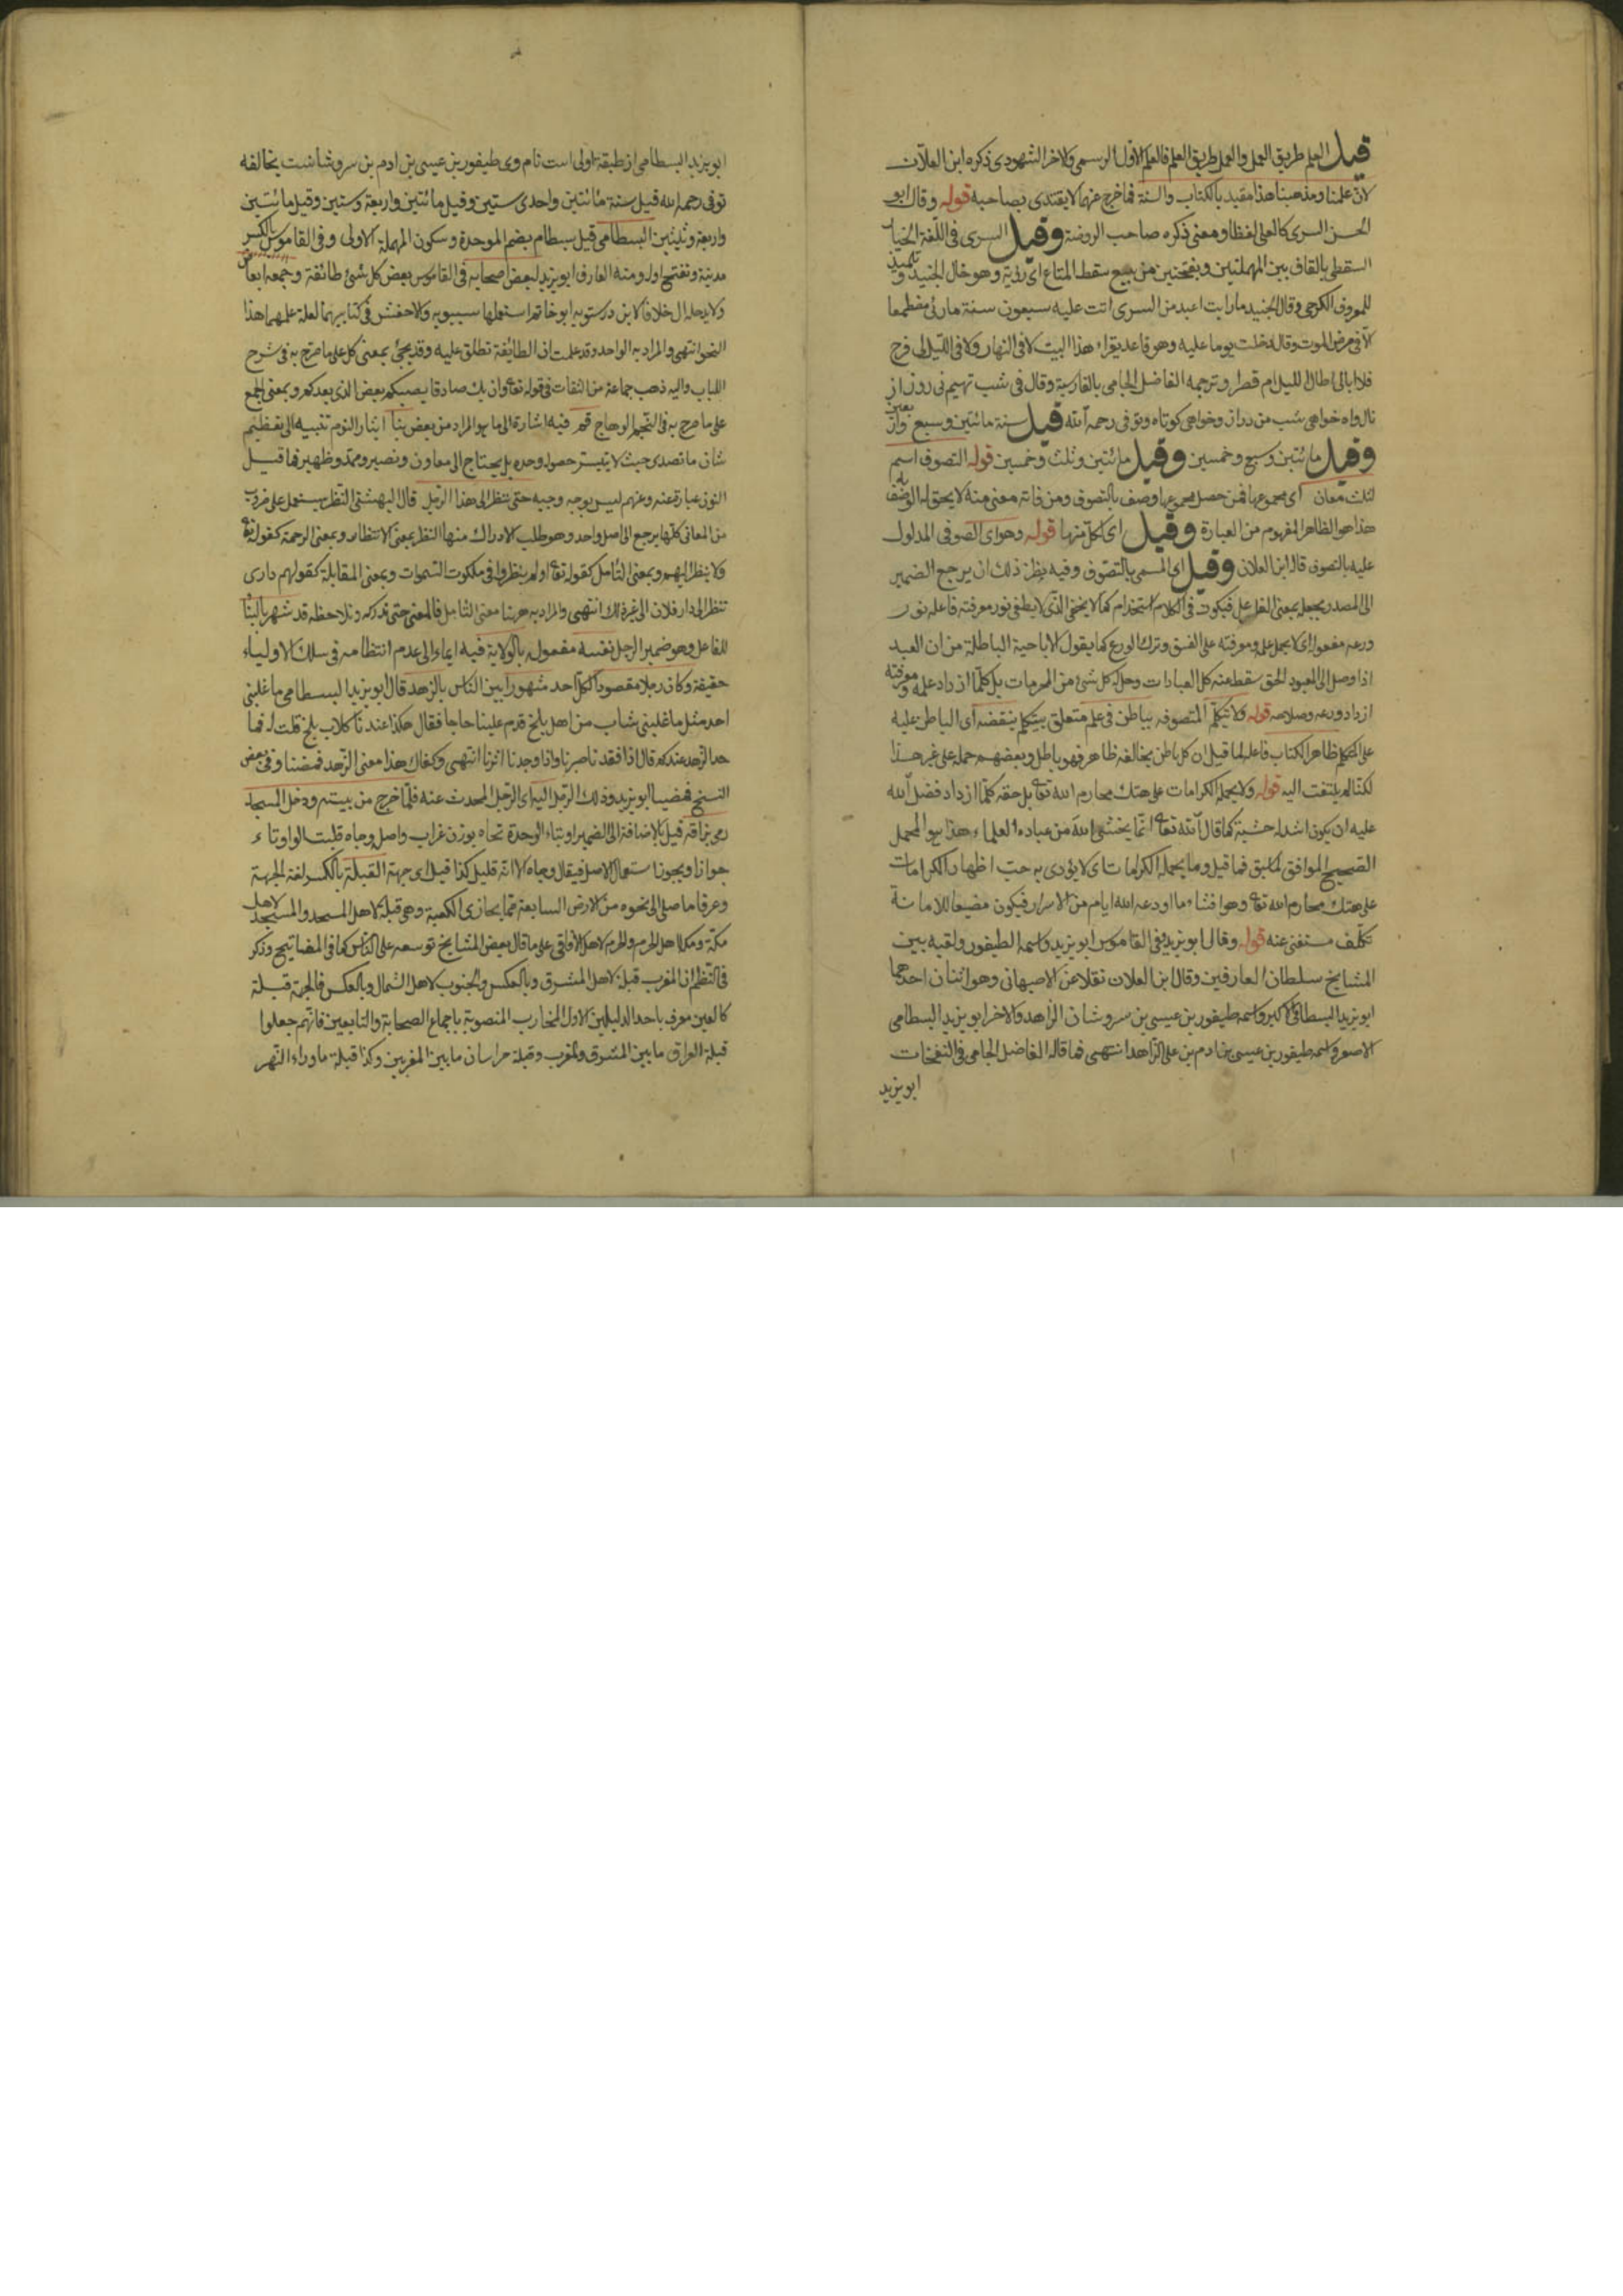 قيل العلم طريق العمل والعمل طريق العلم فالعلم الاول الرسمي والاخر الشهودي ذكره ابن العلان
لان علمنا ومذهبنا هذا مقيد بالكتاب والسنة فما خرج عنهما لا يقتدى بصاحبه قوله وقال ابو
الحسن السرى كالعلى لفظا ومعنى ذكره صاحب الروضة وقيل السرى فى اللغة الخيار
السقطى بالقاف بين المهملتين وبفتحتين من يبيع سقط المتاع اى رديه وهو خال الجنيد وتلميذ
للمعروف الكرخى وقال الجنيد ما رايت اعبد من السرى اتت عليه سبعون سنة ما رئى مضطجعا
الا فى مرض الموت وقال دخلت يوما عليه وهو قاعد يقراء هذا البيت لا فى النهار ولا فى الليل لى فرج
فلا ابالى اطال الليل ام قصر وترجمه الفاضل الجامى بالفارسية وقال فى شب تهيم نى روز از
نال واه خواهى شب من دراز وخواهى كوتاه وتوفى رحمه الله قيل سنة مائتين وسبع واربعين
وقيل مائتين وسبع وخمسين وقيل مائتين وثلث وخمسين قوله التصوف اسم
لثلث معان اى مجموعها فمن حصل مجموعها وصف بالتصوف ومن فاته معنى منه لا يحق له الوصف
هذا هو الظاهر المفهوم من العبارة وقيل اى لكل منها قوله وهو اى الصوفى المدلول
عليه بالتصوف قاله ابن العلان وقيل اى المسمى بالتصوف وفيه نظر ذلك ان يرجع الضمير
الى المصدر بجعله بمعنى الفاعل فيكون فى الكلام استخدام كما لا يخفى الذى لا يطفى نور معرفته فاعله نور
ورعه مفعوله اى لا يحمل علمه ومعرفته على الفسق وترك الورع كما يقول الاباحية الباطلة من ان العبد
اذا وصل الى المعبود الحق سقط عنه كل العبادات وحل له كل شئ من المحرمات بل كلما ازداد علمه ومعرفته
ازداد ورعه وصلاحه قوله ولا يتكلم المتصوفه بباطن فى علم متعلق بيتكلم ينقضه اى الباطن عليه
على المتكلم ظاهر الكتاب فاعله لما قيل ان كل باطن يخالفه ظاهر فهو باطل وبعضهم حمله على غير هذا
لكنا لم يلتفت اليه قوله ولا يحمله الكرامات على هتك محارم الله تعالى بل حقه كلما ازداد فضل الله
عليه ان يكون اشد له خشية كما قال الله تعالى انما يخشى الله من عباده العلماء هذا هو المحمل
الصحيح الموافق لما سبق فما قيل وما يحمله الكرامات اى لا يؤدى به حب اظهار الكرامات
على هتك محارم الله تعالى وهو افشاء ما اودعه الله ايام من الاسرار فيكون مضيعا للامانة
تكلف مستغنى عنه قوله وقال ابو يزيد فى القاموس ابو يزيد واسمه الطيفور ولقبه بين
المشايخ سلطان العارفين وقال ابن العلان نقلا عن الاصبهانى وهو اثنان احدهما
ابو يزيد البسطامى الاكبر واسمه طيفور بن عيسى بن سروشان الزاهد والاخر ابو يزيد البسطامى
الاصغر واسمه طيفور بن عيسى بن ادم بن على الزاهد انتهى فما قاله الفاضل الجامى فى النفحات
ابو يزيد
ابو يزيد البسطامى از طبقه اولى است نام وى طيفور بن عيسى بن ادم بن سروشانست يخالفه
توفى رحمه الله قيل سنة مائتين واحدى ستين وقيل مائتين واربعة وستين وقيل مائتين
واربعة وثلثين البسطامى قيل بسطام بضم الموحدة وسكون المهملة الاولى وفى القاموس بالكسر
مدينة وتفتح اوله ومنه العارف ابو يزيد لبعض اصحابه فى القاموس بعض كل شئ طائفة وجمعه ابعاض
ولا يدخله ال خلافا لابن درستويه ابو حاتم استعملها سيبويه والاخفش فى كتابيهما لعلة علمهما هذا
النحو انتهى والمراد به الواحد وقد علمت ان الطايفة تطلق عليه وقد يجئ بمعنى كل على ما صرح به فى شرح
اللباب واليه ذهب جماعة من الثقات فى قوله تعالى وان يك صادقا يصبكم بعض الذى يعدكم وبمعنى الجمع
على ما صرح به فى النجم الوهاج قم فيه اشارة الى ما هو المراد من بعض بنا ايثار النوم تنبيه الى تعظيم
شان ما تصدى حيث لا يتيسر حصوله وحده بل يحتاج الى معاون ونصير وممد وظهير فما قيل
النون عبارة عنه وعنهم ليس بوجه وجيه حتى ننظر الى هذا الرجل قال البهشتى النظر يستعمل على ضروب
من المعانى كلها يرجع الى اصل واحد وهو طلب الادراك منها النظر بمعنى الانتظار وبمعنى الرحمة كقوله تعالى
ولا ينظر اليهم وبمعنى التامل كقوله تعالى اولم ينظروا فى ملكوت السموات وبمعنى المقابلة كقولهم دارى
تنظر الى دار فلان الى غير ذلك انتهى والمراد به هرهنا معنى التامل فالمعنى حتى ندركه ونلاحظه قد شهر بالبناء
للفاعل وهو ضمير الرجل نفسه مفعوله بالولاية فيه ايماء الى عدم انتظامه فى سلك الاولياء
حقيقة وكان رجلا مقصودا لكل احد مشهورا بين الناس بالزهد قال ابو يزيد البسطامى ما غلبنى
احد مثل ما غلبنى شاب من اهل بلخ قدم علينا حاجا فقال هكذا عندنا كلاب بلخ قلت له فما
حد الزهد عندكم قال اذا فقدنا صبرنا واذا وجدنا اثرنا انتهى وكفاك هذا معنى الزهد فمضينا وفى بعض
النسخ فمضيا ابو يزيد وذلك الرجل اليه اى الرجل المحدث عنه فلما خرج من بيته ودخل المسجد
رمى بزاقه قيل بالاضافة الى الضمير او بتاء الوحدة تجاه بوزن غراب واصله وجاه قلبت الواو تاء
جوازا ويجوز استعمال الاصل فيقال وجاه الا انه قليل كذا قيل اى جهة القبلة بالكسر لغة الجهة
وعرفا ما صلى الى نحوه من الارض السابعة مما يحاذى الكعبة وهى قبلة لاهل المسجد والمسجد لاهل
مكة ومكة لاهل الحرم والحرم لاهل الافاقى على ما قال بعض المشايخ توسعه على الناس كما فى المفاتيح وذكر
فى النظم ان المغرب قبلة لاهل المشرق وبالعكس والجنوب لاهل الشمال وبالعكس فالجهة قبلة
كالعين معرف باحد الدليلين الاول المحارب المنصوبة باجماع الصحابة والتابعين فانهم جعلوا
قبلة العراق ما بين المشرق والمغرب وقبلة خراسان ما بين المغربين وكذا قبلة ما وراء النهر